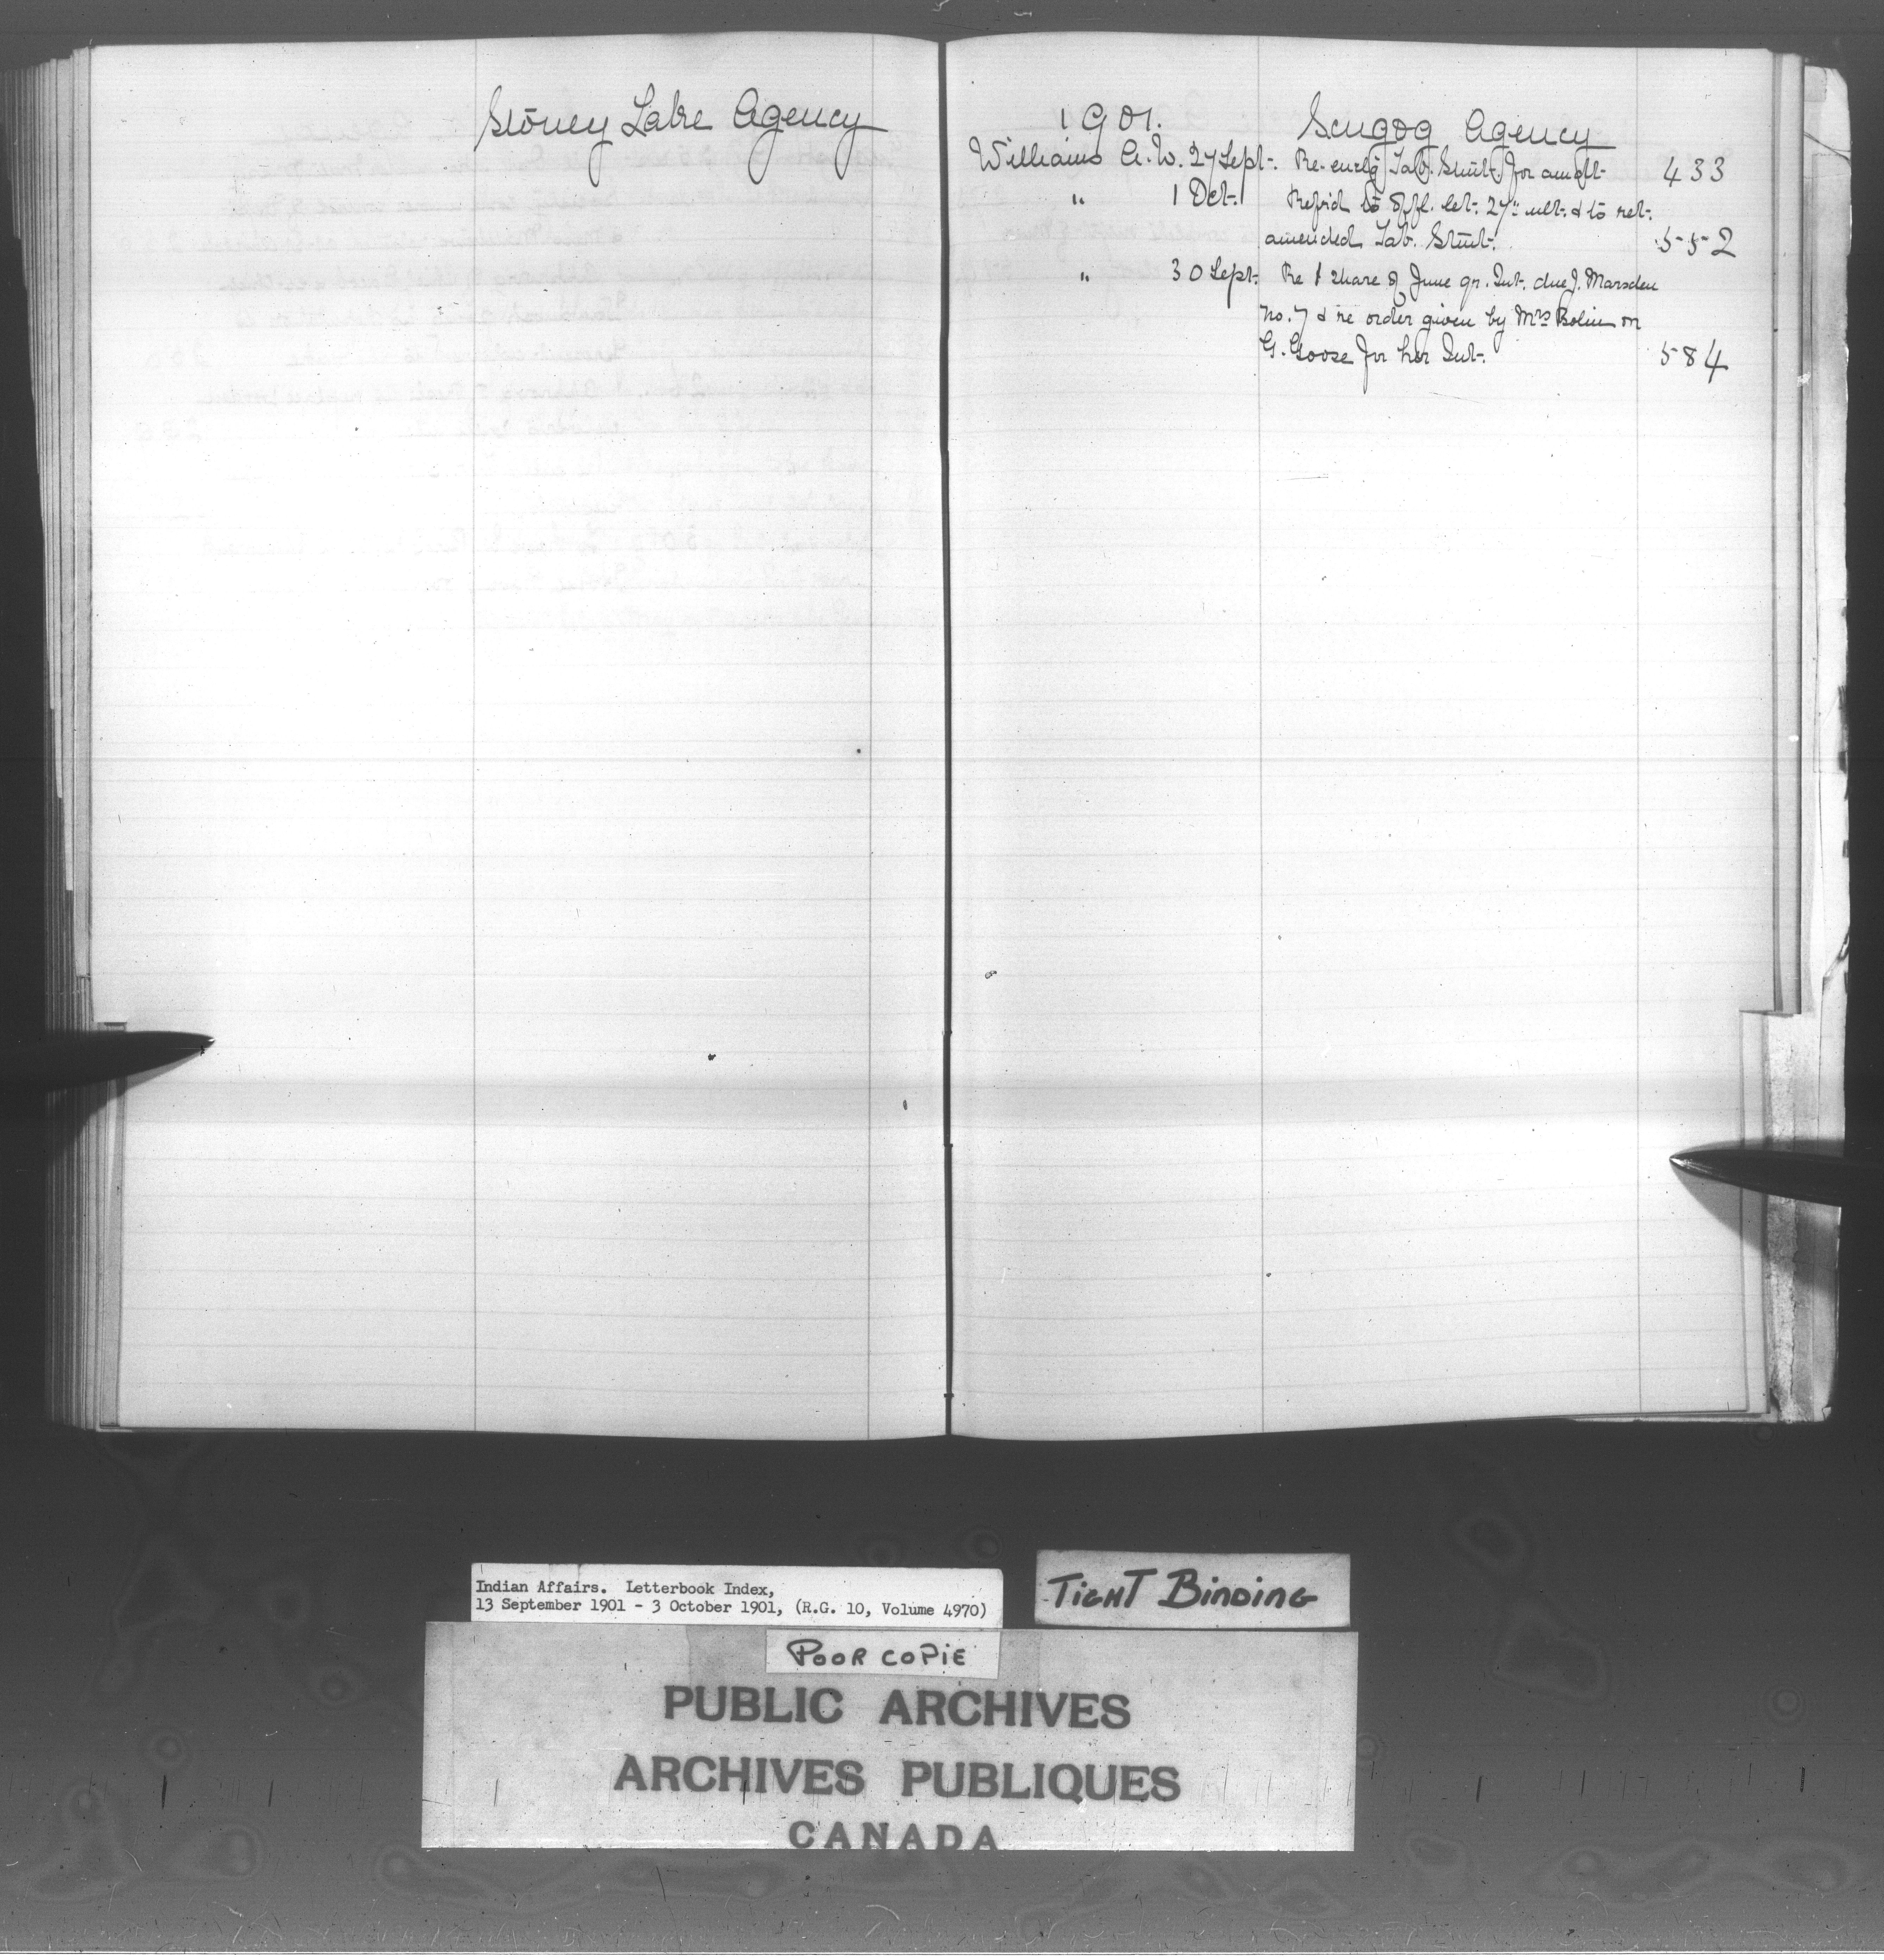 Stoney Lake Agency
1901. Scugog Agency
Williams A. W. 27 Sept. Re-encl'g Tab. Stmt. for am't 433
" 1 Oct. Ref'rd to Offl. let. 27th ult. & to ret.
amended Tab. Stmt. 552
" 30 Sept. Re 1 share of June qr. Int. due J. Marsden
No. 7 & re order given by Mrs Bolin on
G. Goose for her Int. 584
Indian Affairs. Letterbook Index,
13 September 1901 - 3 October 1901, (R.G. 10, Volume 4970)
TIGHT BINDING
POOR COPIE
PUBLIC ARCHIVES
ARCHIVES PUBLIQUES
CANADA